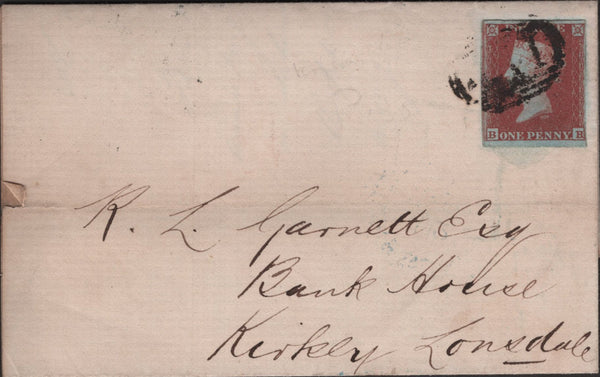 B ONE PENNY B
R. L. Garnett Esq
Bank House
Kirkby Lonsdale